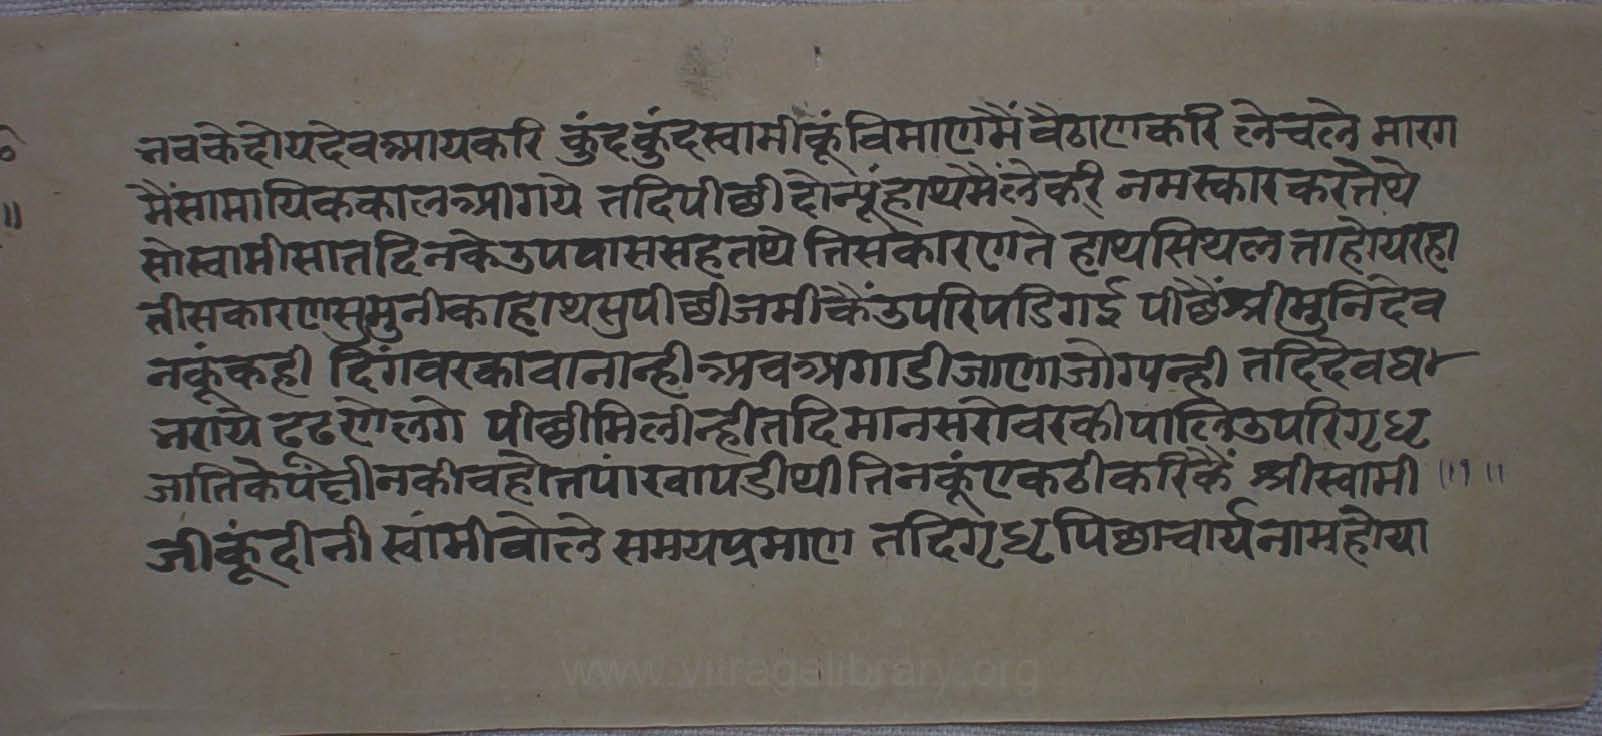 नवकेदोयदेवआयकरि कुंदकुंदस्वामीकूंविमाणमैं वैठाणकरि लेचले मारग
मैंसामायिककालआगये तदिपीछीदोन्यूंहाथमैंलेकरि नमस्कारकरतेथे
सोस्वामीसातदिनकेउपवाससहतथे तिसकारणते हाथसिथल ताहोयरहा
तीसकारणसुमुनीकाहाथसुपीछीजमीकैंउपरिपडिगई पीछैंश्रीमुनिदेव
नकूंकही दिगंवरकावानान्हीअवअगाडीजाणाजोग्यन्ही तदिदेवघ
नरायेढढणेलगे पीछीमिलीन्हीतदिमानसरोवरकीपालिउपरिगृध्र
जातिकेपंछीनकीवहोतपांखापडीथी तिनकूंएकठीकरिकैं श्रीस्वामी ॥१॥
जीकूंदीनी स्वांमीवोले समयप्रमाण तदिगृध्रपिछाचार्यनामहोया
www.vitragelibrary.org